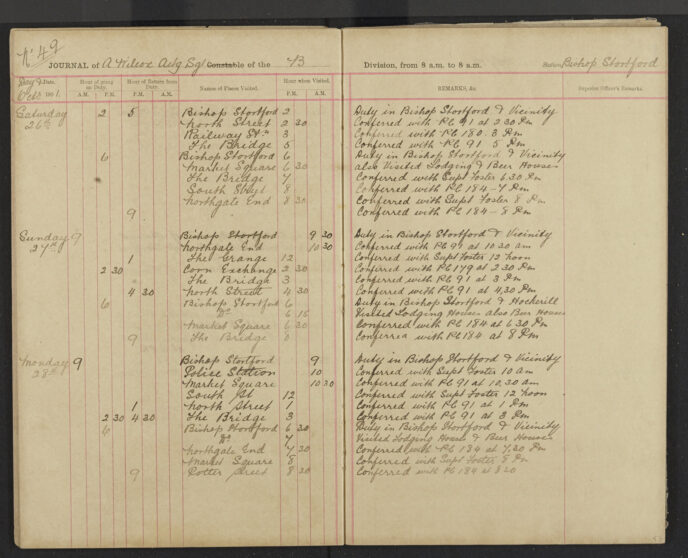 No 49
JOURNAL of A Wilcox Actg Sgt Constable of the "B" Division, from 8 a.m. to 8 a.m. Station Bishop Stortford
Day & Date. Hour of going on Duty. Hour of Return from Duty. Names of Places Visited. Hour when Visited. REMARKS, &c. Superior Officer's Remarks.
Oct 1901. A.M. P.M. P.M. A.M. P.M. A.M.
Saturday 2 5 Bishop Stortford 2 Duty in Bishop Stortford & Vicinity
26th North Street 2 30 Conferred with PC 91 at 2.30 Pm
Railway Stn 3 Conferred with PC 180. 3 Pm
The Bridge 5 Conferred with PC 91 5 Pm
6 Bishop Stortford 6 Duty in Bishop Stortford & Vicinity
Market Square 6 30 also Visited Lodging & Beer Houses
The Bridge 7 Conferred with Supt Foster 6.30 Pm
South Street 8 Conferred with PC 184 - 7 Pm
Northgate End 8 30 Conferred with Supt Foster 8 Pm
9 Conferred with PC 184 - 8 Pm
Sunday 9 Bishop Stortford 9 30 Duty in Bishop Stortford & Vicinity
27th Northgate End 10 30 Conferred with PC 91 at 10.30 am
1 The Grange 12 Conferred with Supt Foster 12 noon
2 30 Corn Exchange 2 30 Conferred with PC 179 at 2.30 Pm
The Bridge 3 Conferred with PC 91 at 3 Pm
4 30 North Street 4 30 Conferred with PC 91 at 4.30 Pm
6 Bishop Stortford 6 Duty in Bishop Stortford & Hockerill
Do 6 15 Visited Lodging Houses also Beer Houses
Market Square 6 30 Conferred with PC 184 at 6.30 Pm
9 The Bridge 8 Conferred with PC 184 at 8 Pm
Monday 9 Bishop Stortford 9 Duty in Bishop Stortford & Vicinity
28th Police Station 10 Conferred with Supt Foster 10 am
Market Square 10 30 Conferred with PC 91 at 10.30 am
South St 12 Conferred with Supt Foster 12 noon
1 North Street 1 Conferred with PC 91 at 1 Pm
2 30 4 30 The Bridge 3 Conferred with PC 91 at 3 Pm
6 Bishop Stortford 6 30 Duty in Bishop Stortford & Vicinity
Do 7 Visited Lodging House & Beer Houses
Northgate End 7 30 Conferred with PC 184 at 7.30 Pm
Market Square 8 Conferred with Supt Foster 8 Pm
9 Potter Street 8 20 Conferred with PC 184 at 8 20